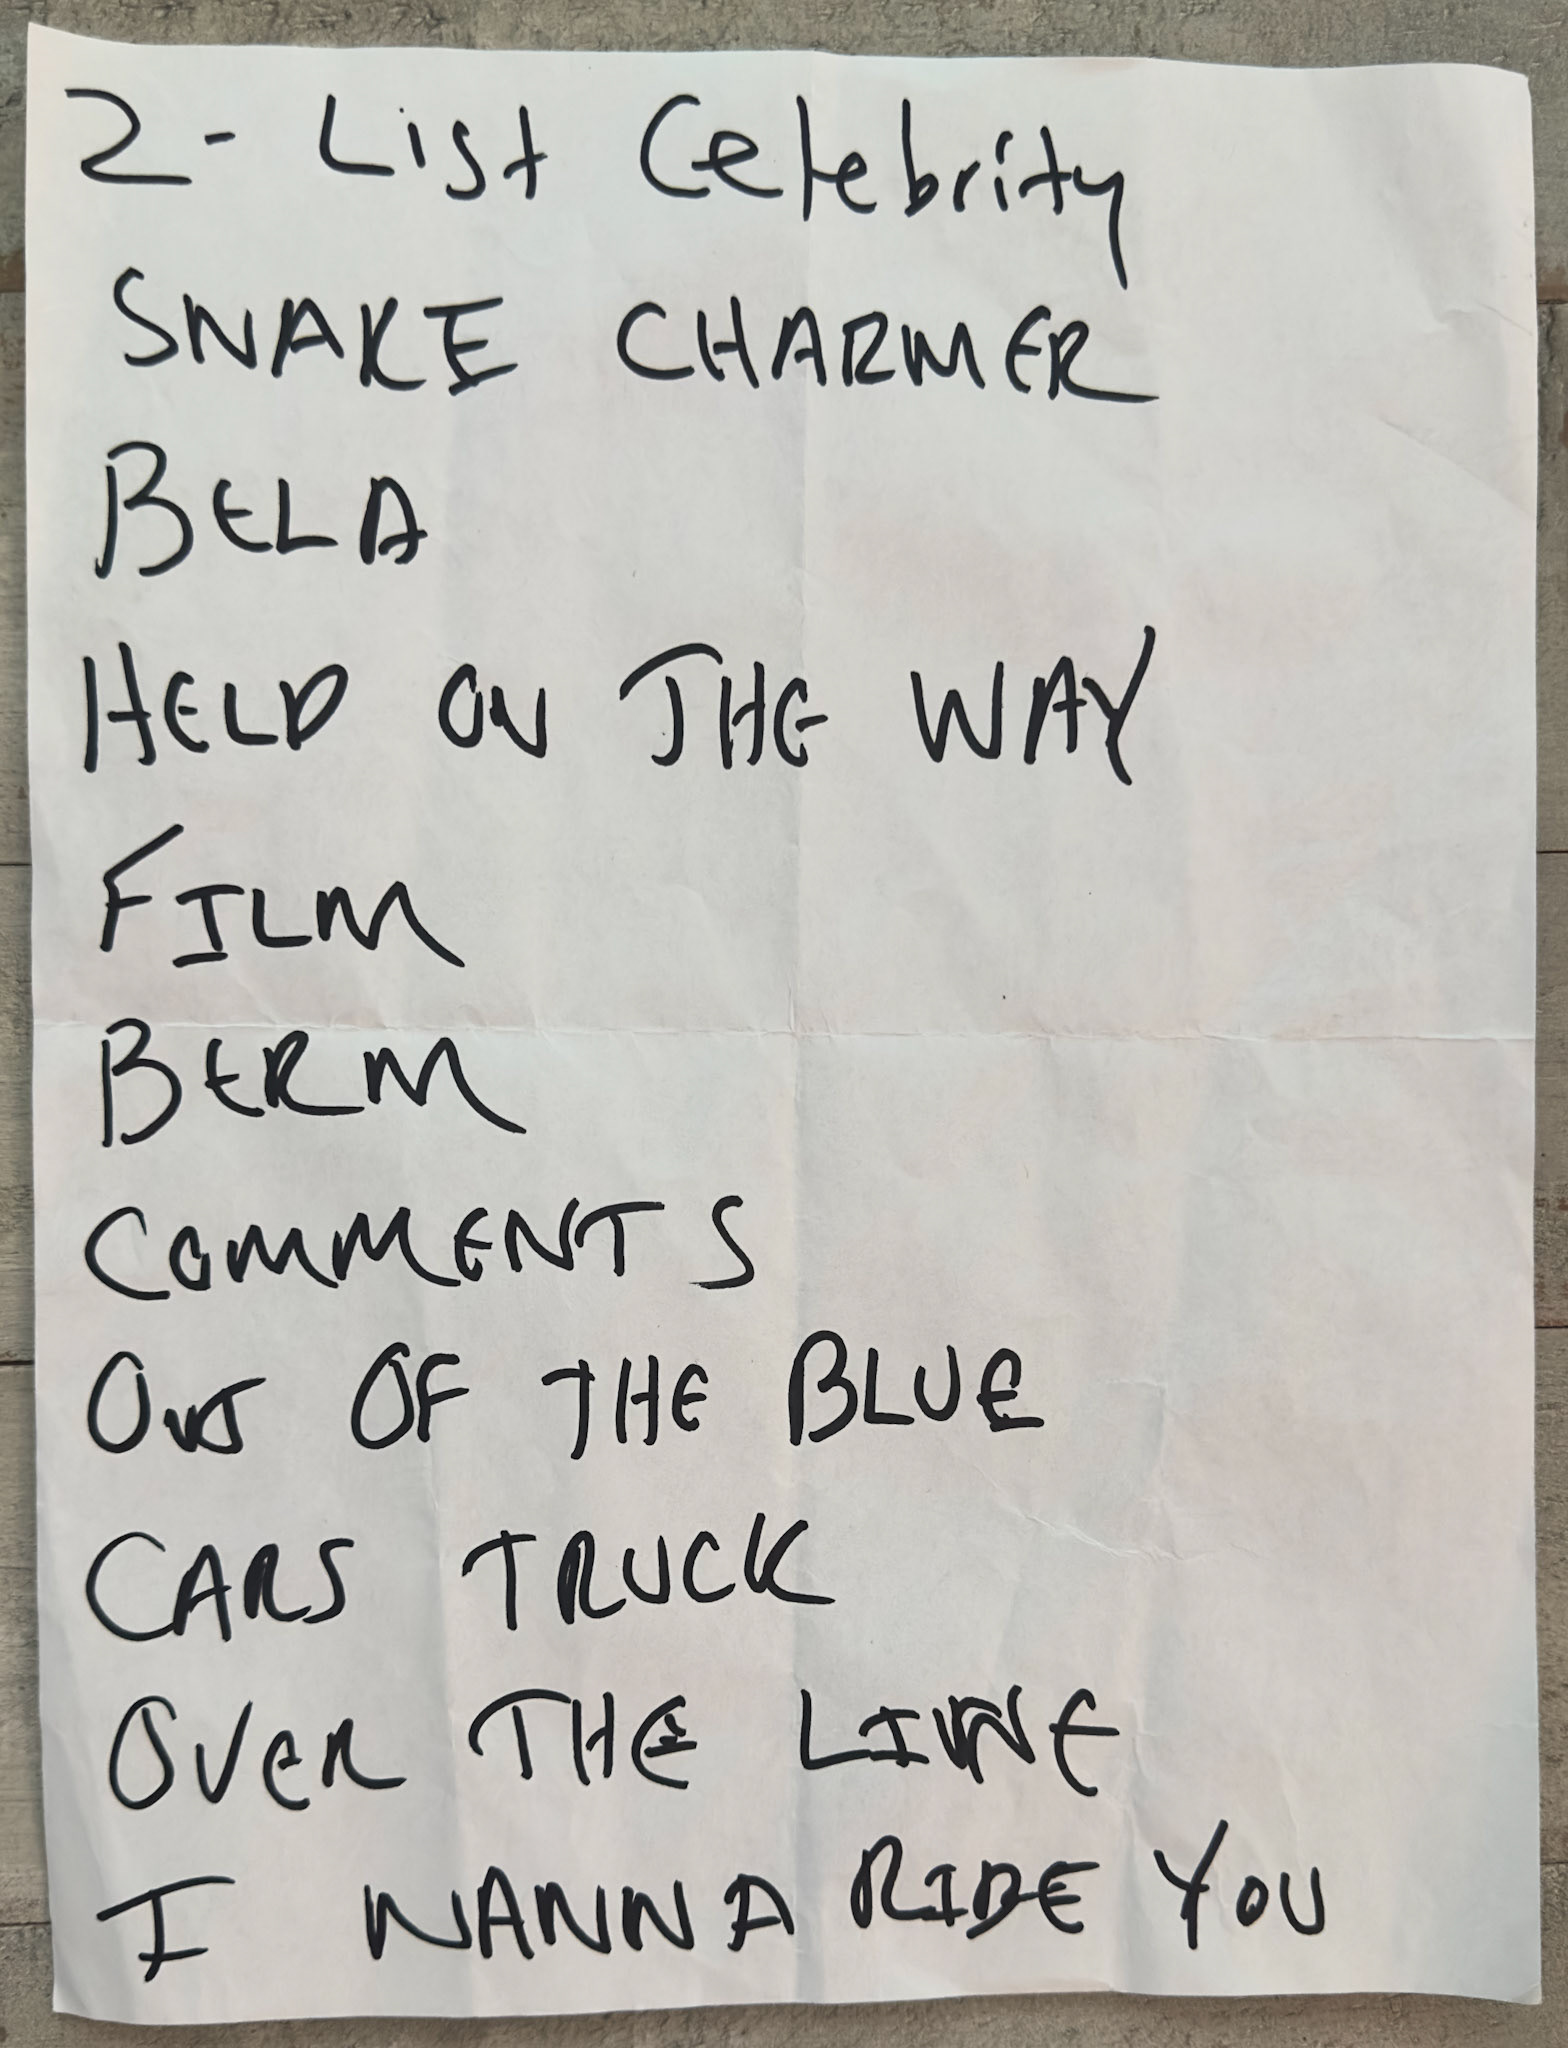 2- List Celebrity
SNAKE CHARMER
BELA
HELD ON THE WAY
FILM
BERM
COMMENTS
OUT OF THE BLUE
CARS TRUCK
OVER THE LINE
I WANNA RIDE YOU